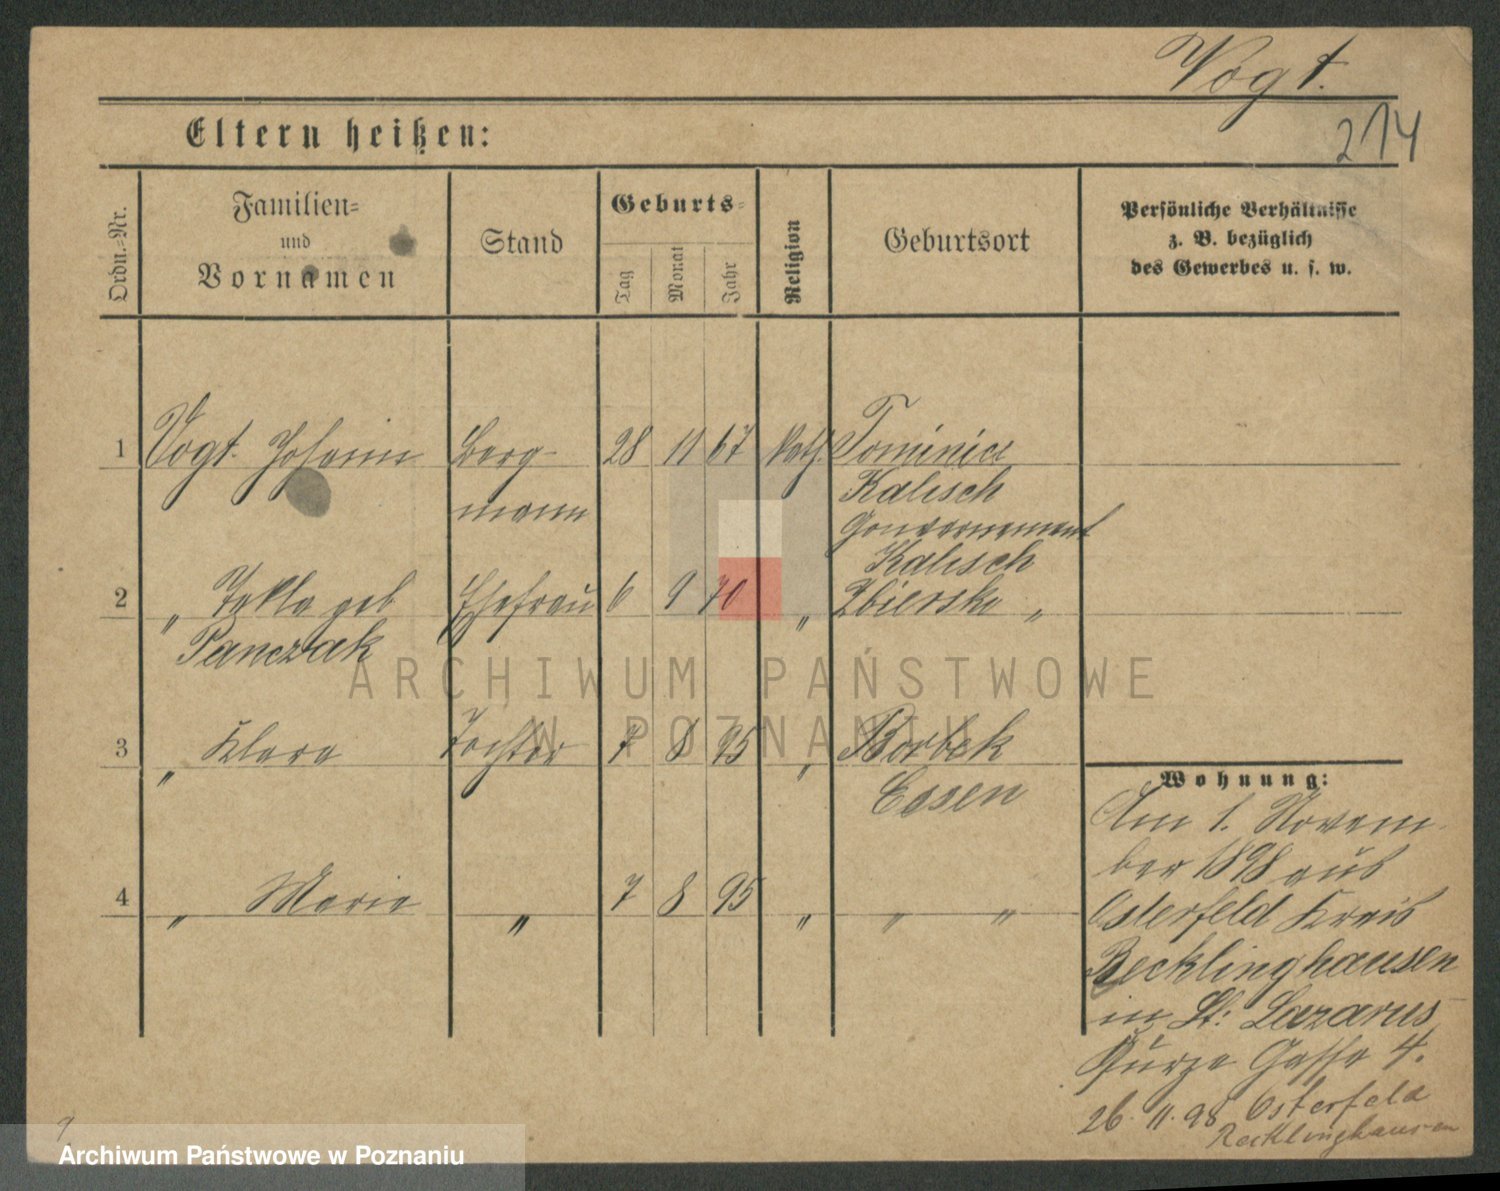 Vogt.
214
Eltern heißen:
Ordn.=Nr.
Familien=
und
Vornamen
Stand
Geburts=
Tag
Monat
Jahr
Religion
Geburtsort
Persönliche Verhältnisse
z. B. bezüglich
des Gewerbes u. s. w.
1 Vogt Johann Berg- 28 11 67 kath. Tominice
mann Kalisch
Gouvernement
Kalisch
2 „ Tekla geb Ehefrau 6 9 70 „ Zbiersk „
Panczak
3 „ Klara Tochter 7 8 95 „ Borbek
Essen
4 „ Maria „ 7 8 95 „ „ „
Wohnung:
Am 1. Novem-
ber 1898 aus
Osterfeld Kreis
Recklinghausen
in St. Lazarus
Kurze Gasse 4.
26. 11. 98 Osterfeld
Recklinghausen
ARCHIWUM PAŃSTWOWE
W POZNANIU
Archiwum Państwowe w Poznaniu